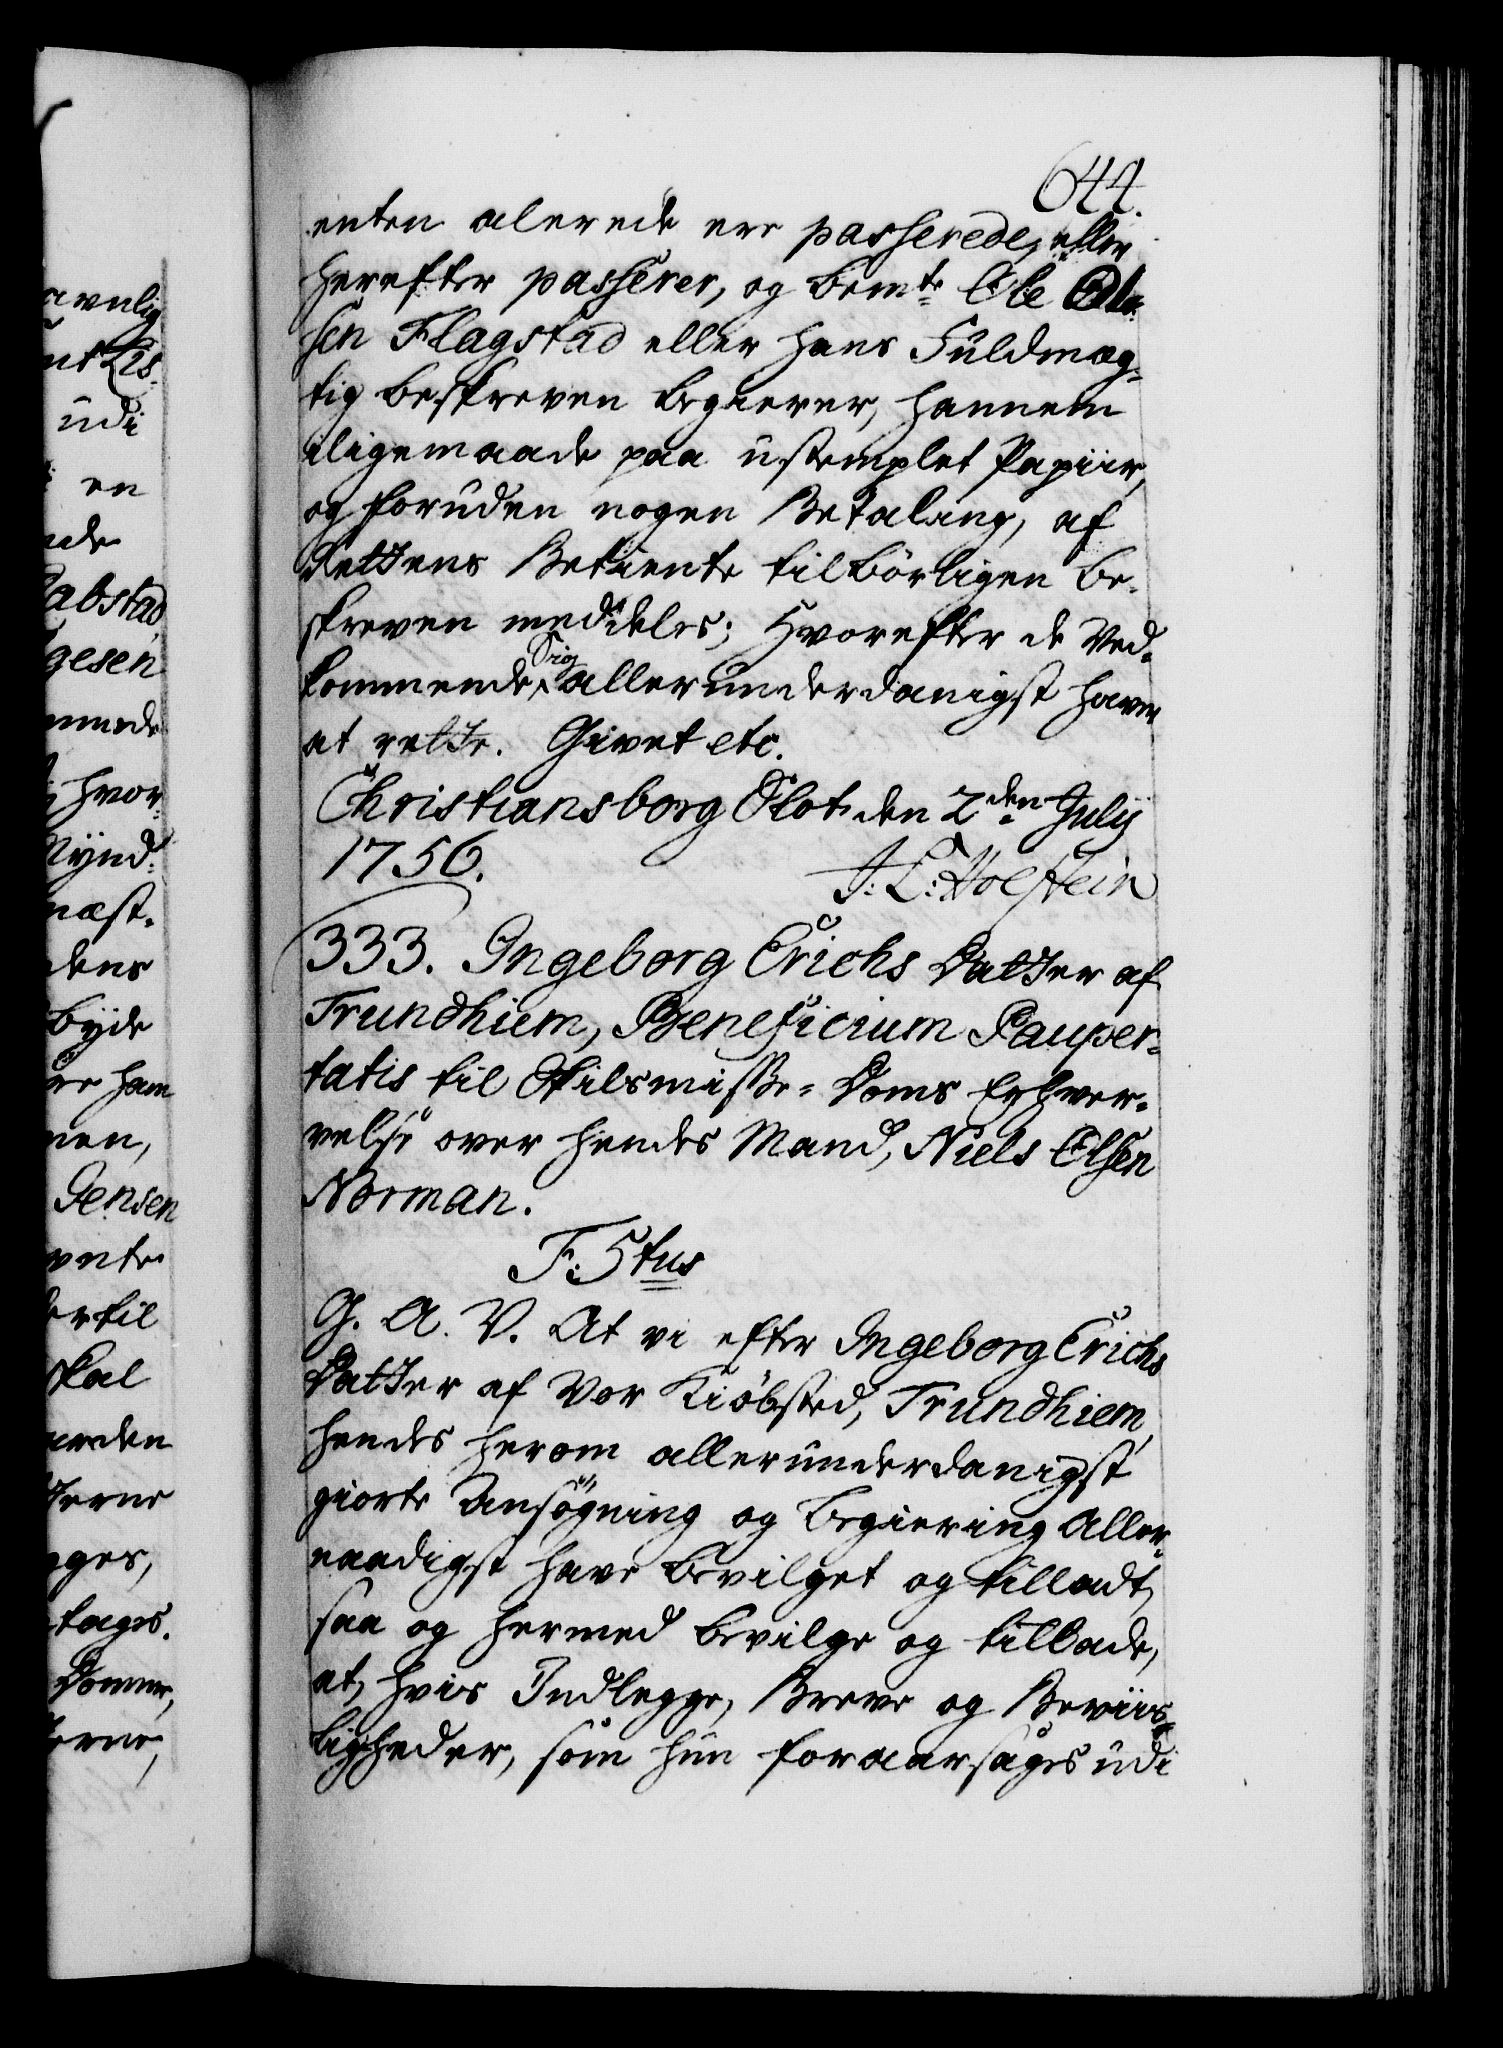 644.
enten alerede ere passerede, eller
herefter passerer, og bemte Ole Ole-
sen Flagstad eller hans Fuldmæg-
tig beskreven begierer, hannem
iligemaade paa ustemplet Papiir,
og foruden nogen Betaling, af
Rettens Betiente tilbörligen be-
skreven meddeles; Hvorefter de Ved-
kommende Sig allerunderdanigst haver
at rette. Givet etc.
Christiansborg Slot den 2den July
1756.
J: L: Holstein
333. Ingeborg Erichs Datter af
Trundhiem, Beneficium Pauper-
tatis til Skilsmisse-Doms Erhver-
velse over hendes Mand, Niels Olsen
Norman.
F: 5tus
G. A. V. At vi efter Ingeborg Erichs
Datter af vor Kiöbsted, Trundhiem,
hendes herom allerunderdanigst
giorte Ansögning og begiering Aller-
naadigst have bevilget og tilladt,
saa og hermed bevilge og tillade,
at, hvis Indlegge, Breve og Beviis-
ligheder, som hun foraarsages udi
avnlig
udi
en
abstad,
gesen
hvor-
Mynd-
næst-
dens
byde
ham
Jensen
ertil
skal
tages.
Domme,